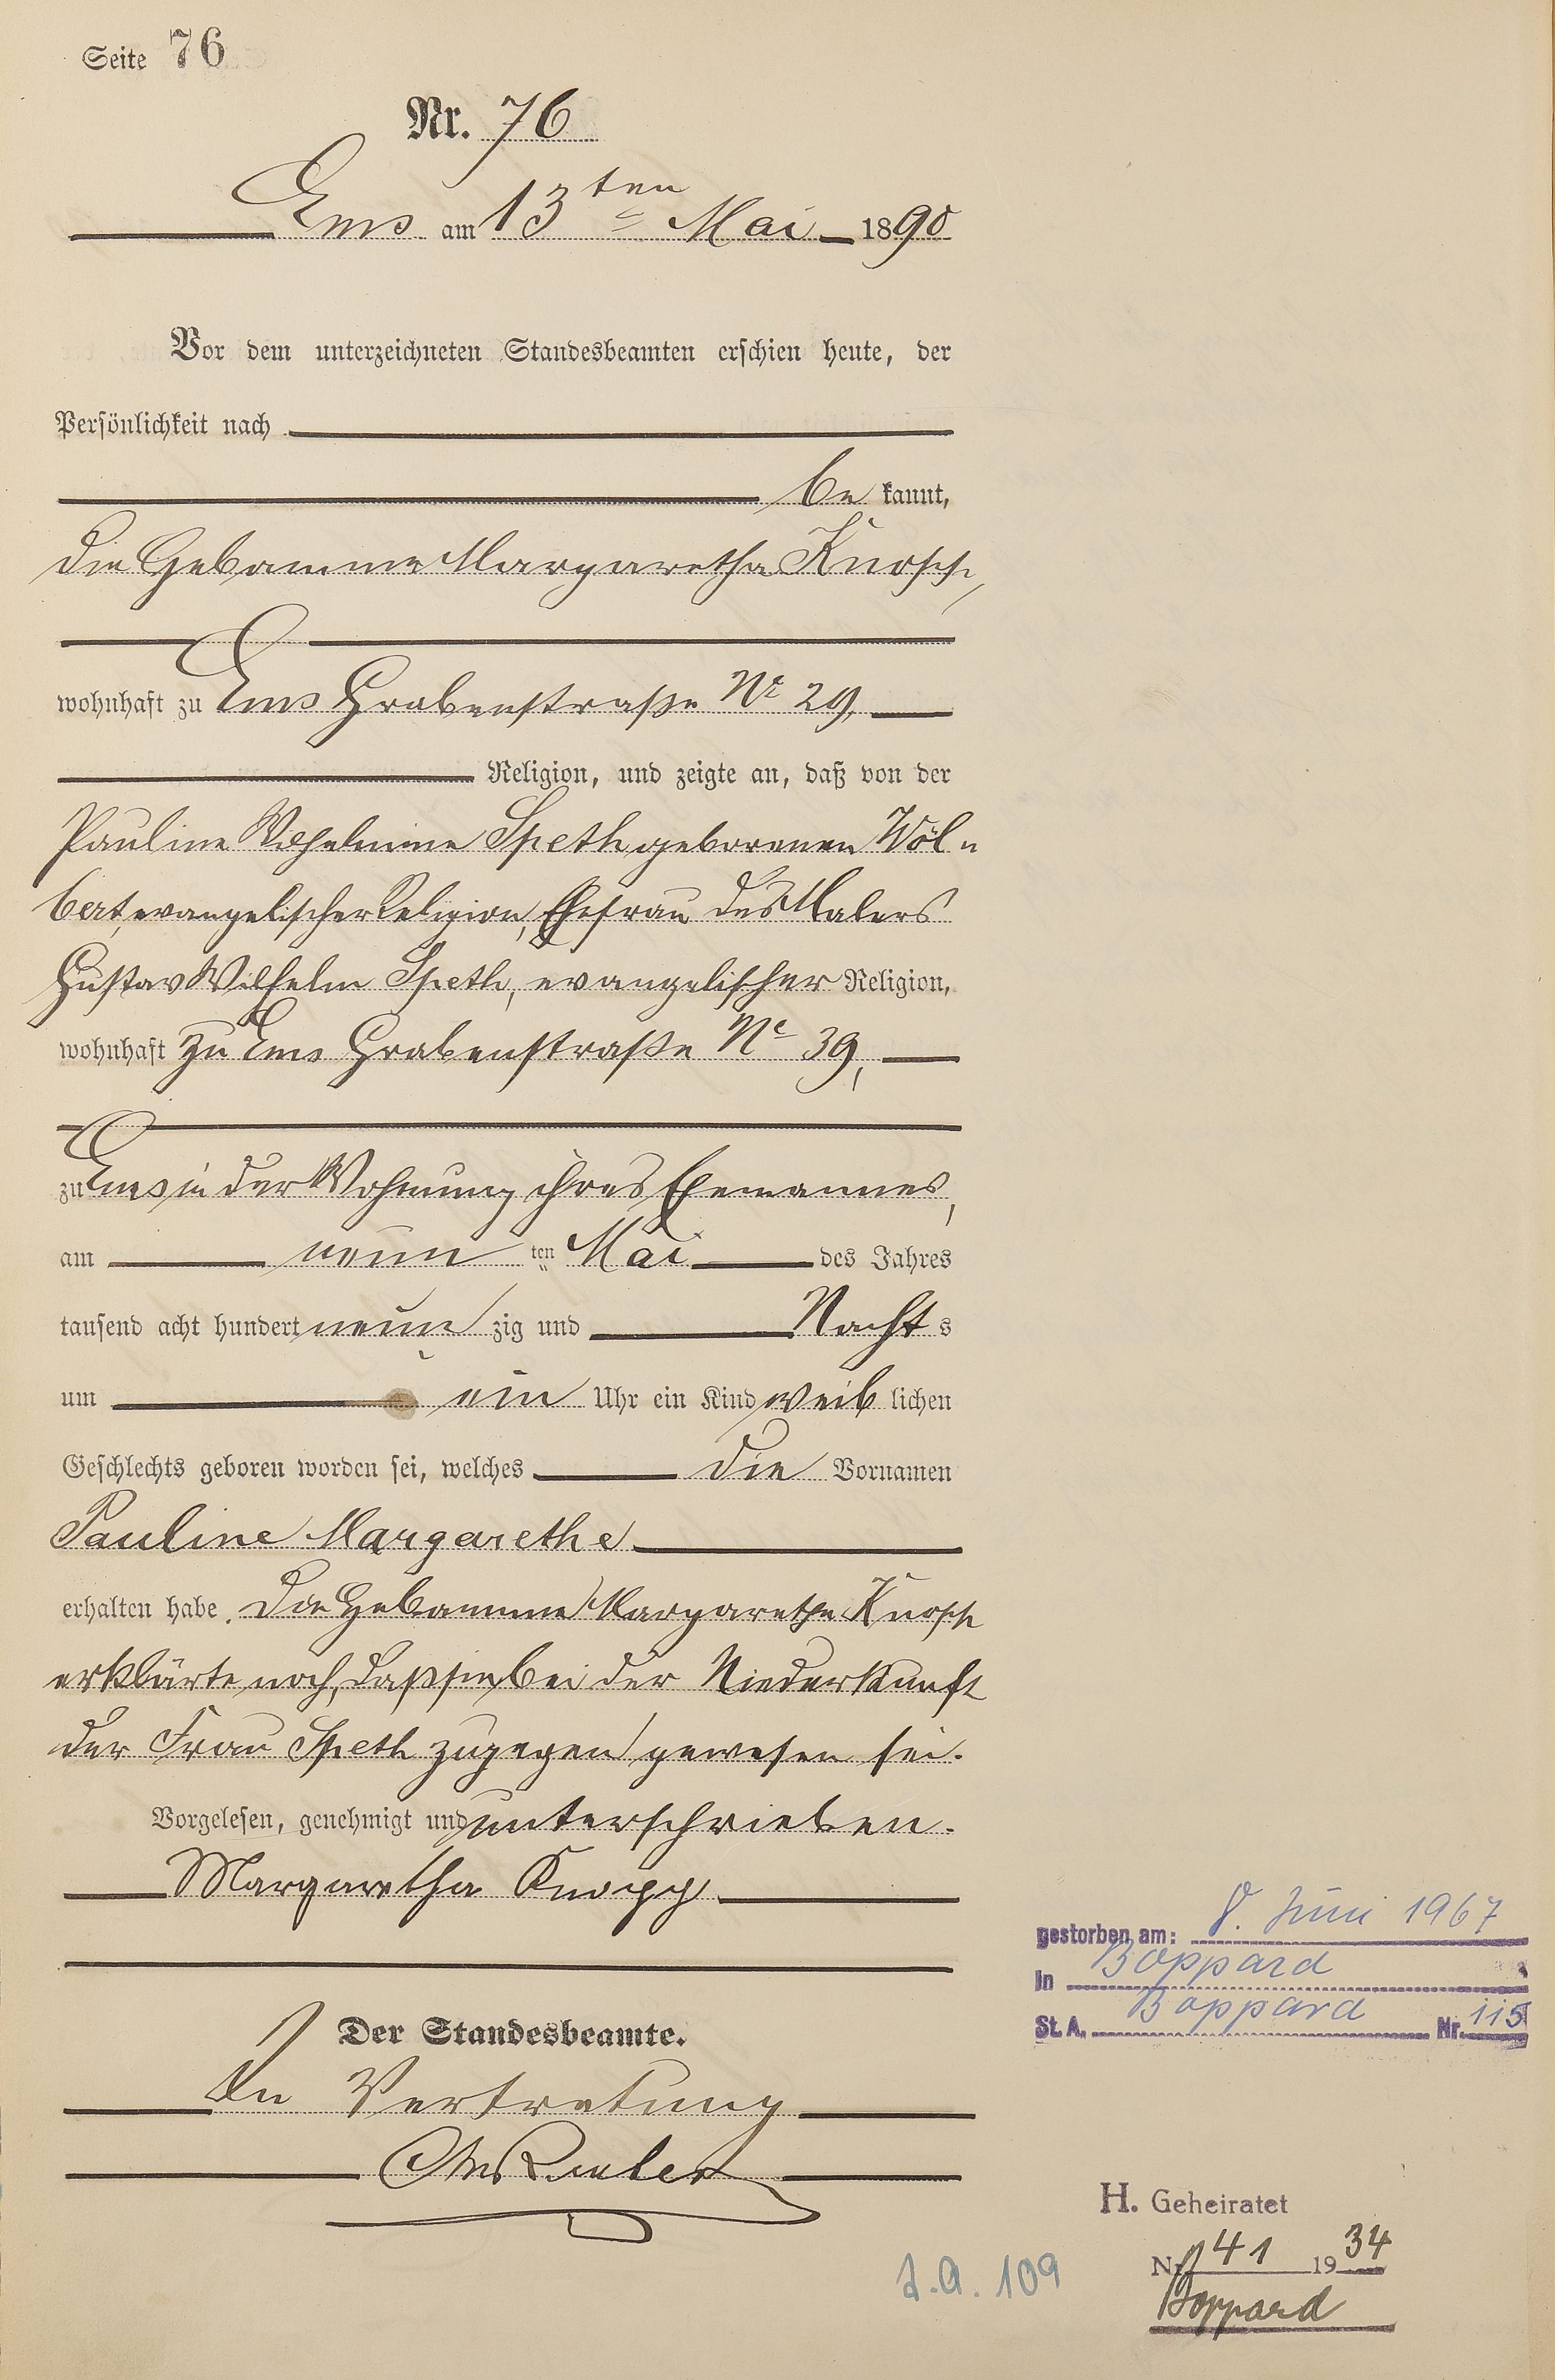 Seite 76
Nr. 76
Ems am 13ten Mai 1890
Vor dem unterzeichneten Standesbeamten erschien heute, der
Persönlichkeit nach
be kannt,
die Hebamme Margaretha Knopp,
wohnhaft zu Ems Grabenstraße No 29,
Religion, und zeigte an, daß von der
Pauline Wilhelmine Speth geborenen Wöl-
bert, evangelischer Religion, Ehefrau des Malers
Gustav Wilhelm Speth, evangelischer Religion,
wohnhaft zu Ems Grabenstraße No 39,
zu Ems in der Wohnung ihres Ehemannes,
am neun ten Mai des Jahres
tausend acht hundert neun zig und Nacht s
um ein Uhr ein Kind weib lichen
Geschlechts geboren worden sei, welches die Vornamen
Pauline Margarethe
erhalten habe. Die Hebamme Margaretha Knopp
erklärte noch, daß sie bei der Niederkunft
der Frau Speth zugegen gewesen sei.
Vorgelesen, genehmigt und unterschrieben.
Margaretha Knopp
Der Standesbeamte.
In Vertretung
gestorben am: 8. Juni 1967
in Boppard
St. A. Boppard Nr. 115
H. Geheiratet
Nr. 41 1934
Boppard
109